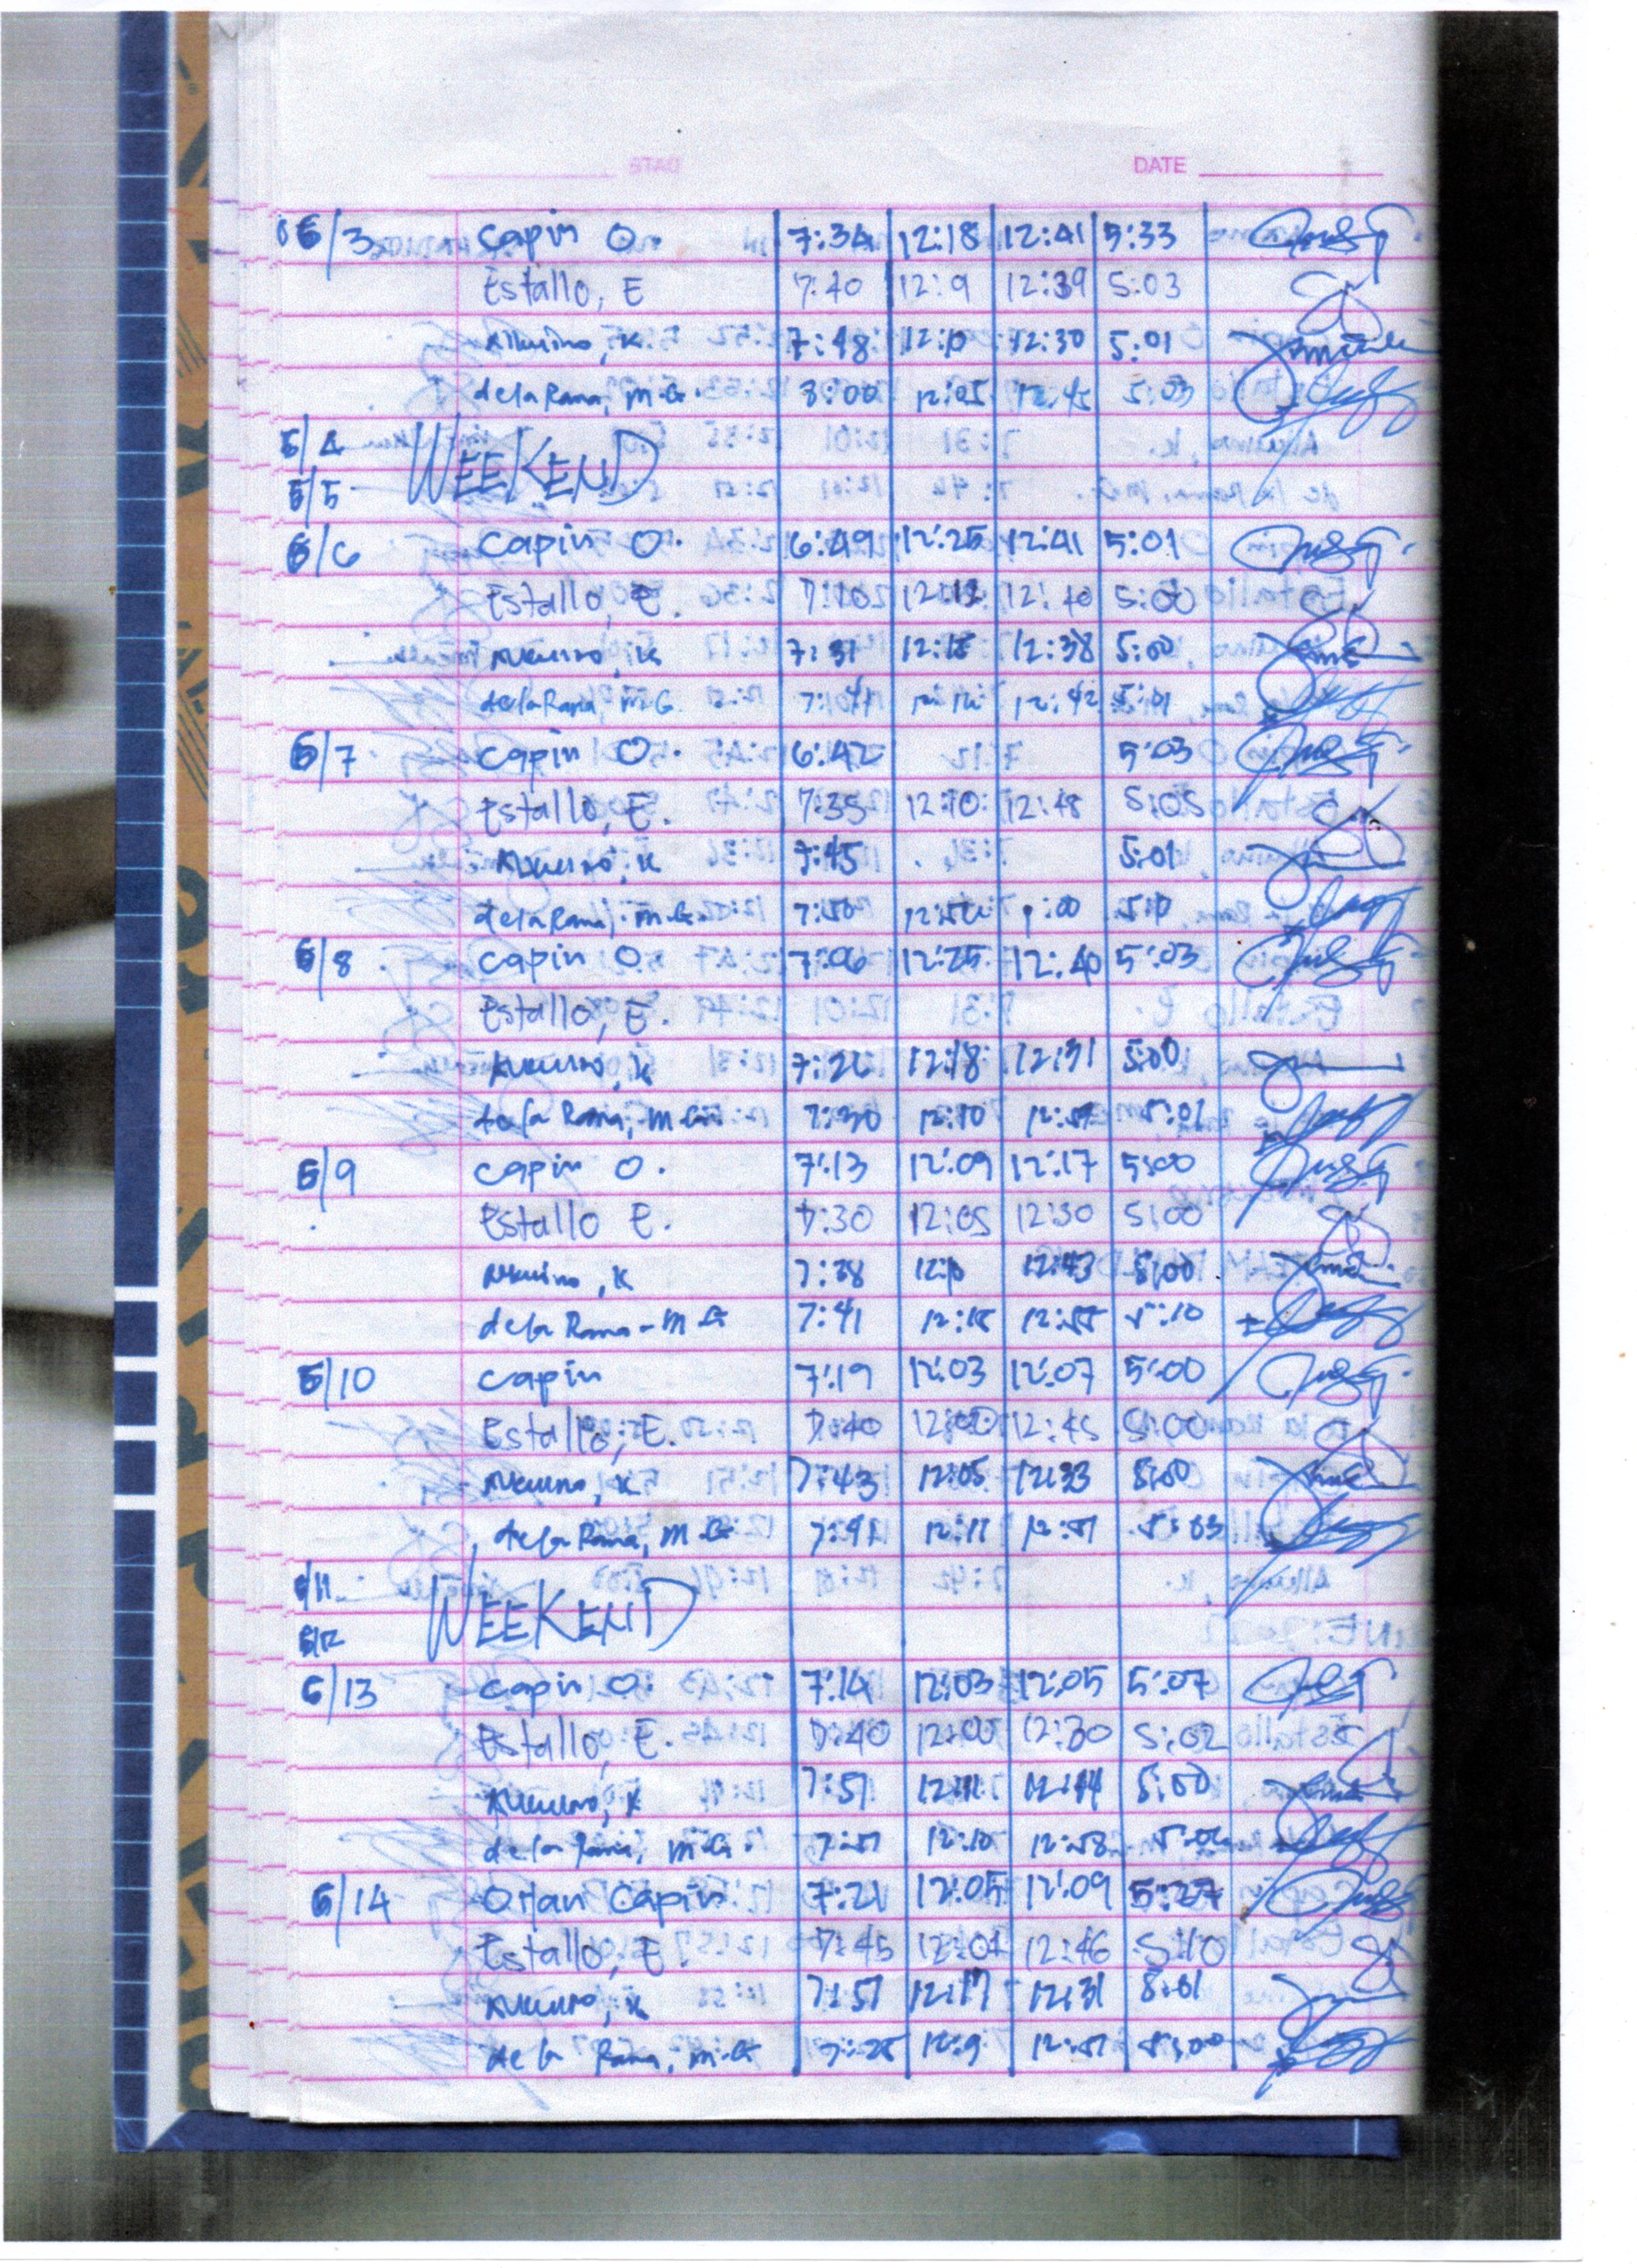 DATE
6/3 Capin O. 7:34 12:18 12:41 5:33
Estallo, E 7:40 12:9 12:39 5:03
Alkuino, K 7:48 12:10 12:30 5:01
de la Rama, M.G. 8:00 12:05 12:45 5:03
6/4 WEEKEND
6/5
6/6 Capin O. 6:49 12:25 12:41 5:01
Estallo, E. 7:10 12:12 12:40 5:00
Alkuino, K 7:31 12:18 12:38 5:00
de la Rama, M.G. 12:42 5:01
6/7 Capin O. 6:42 5:03
Estallo, E. 7:35 12:10 12:48 5:05
Alkuino, K 7:45 5:01
de la Rama, M.G. 7:50 1:00 5:10
6/8 Capin O. 7:06 12:25 12:40 5:03
Estallo, E.
Alkuino, K 7:26 12:18 12:31 5:00
de la Rama, M.G. 7:30 12:10 5:01
6/9 Capin O. 7:13 12:09 12:17 5:00
Estallo E. 7:30 12:05 12:30 5:00
Alkuino, K 7:38 12:10 12:43 5:00
de la Rama - M G 7:41 12:15 12:55 5:10
6/10 Capin 7:19 12:03 12:07 5:00
Estallo, E. 7:40 12:00 12:45 5:00
Alkuino, K 7:43 12:05 12:33 5:00
de la Rama, M.G. 12:11 12:51 5:03
6/11 WEEKEND
6/12
6/13 Capin O. 7:14 12:03 12:05 5:07
Estallo, E. 7:40 12:00 12:30 5:02
Alkuino, K 7:51 12:11 12:44 5:00
de la Rama, M.G. 7:51 12:10 12:58
6/14 Orlan Capin 7:21 12:05 12:09 5:27
Estallo, E. 7:45 12:01 12:46 5:10
Alkuino, K 7:51 12:17 12:31 5:01
de la Rama, M.G. 12:9 12:51 5:00